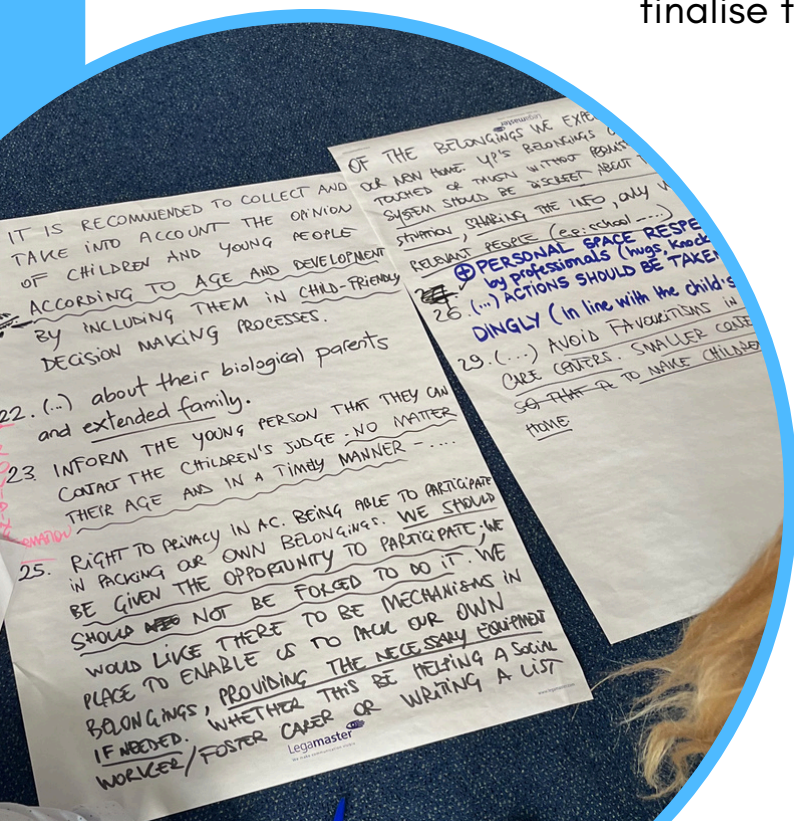 finalise t
IT IS RECOMMENDED TO COLLECT AND
TAKE INTO ACCOUNT THE OPINION
OF CHILDREN AND YOUNG PEOPLE
ACCORDING TO AGE AND DEVELOPMENT
BY INCLUDING THEM IN CHILD-FRIENDLY
DECISION MAKING PROCESSES.
22. (...) about their biological parents
and extended family.
23. INFORM THE YOUNG PERSON THAT THEY CAN
CONTACT THE CHILDREN'S JUDGE - NO MATTER
THEIR AGE AND IN A TIMELY MANNER - ....
25. RIGHT TO PRIVACY IN AC. BEING ABLE TO PARTICIPATE
IN PACKING OUR OWN BELONGINGS. WE SHOULD
BE GIVEN THE OPPORTUNITY TO PARTICIPATE, WE
SHOULD NOT BE FORCED TO DO IT. WE
WOULD LIKE THERE TO BE MECHANISMS IN
PLACE TO ENABLE US TO PACK OUR OWN
BELONGINGS, PROVIDING THE NECESSARY EQUIPMENT
IF NEEDED. WHETHER THIS BE HELPING A SOCIAL
WORKER/FOSTER CARER OR WRITING A LIST
Legamaster
OF THE BELONGINGS WE
OUR NEW HOME. YP'S BELONGINGS
TOUCHED OR TAKEN WITHOUT
SYSTEM SHOULD BE DISCREET ABOUT
SITUATION, SHARING THE INFO, ONLY
RELEVANT PEOPLE (e.g.: school ....)
⊕ PERSONAL SPACE RESPE
by professionals (hugs, knock
26. (...) ACTIONS SHOULD BE TAKEN
DINGLY (in line with the child's
29. (...) AVOID FAVOURITISMS IN
CARE CENTERS. SMALLER
TO MAKE CHILDREN
HOME
Legamaster